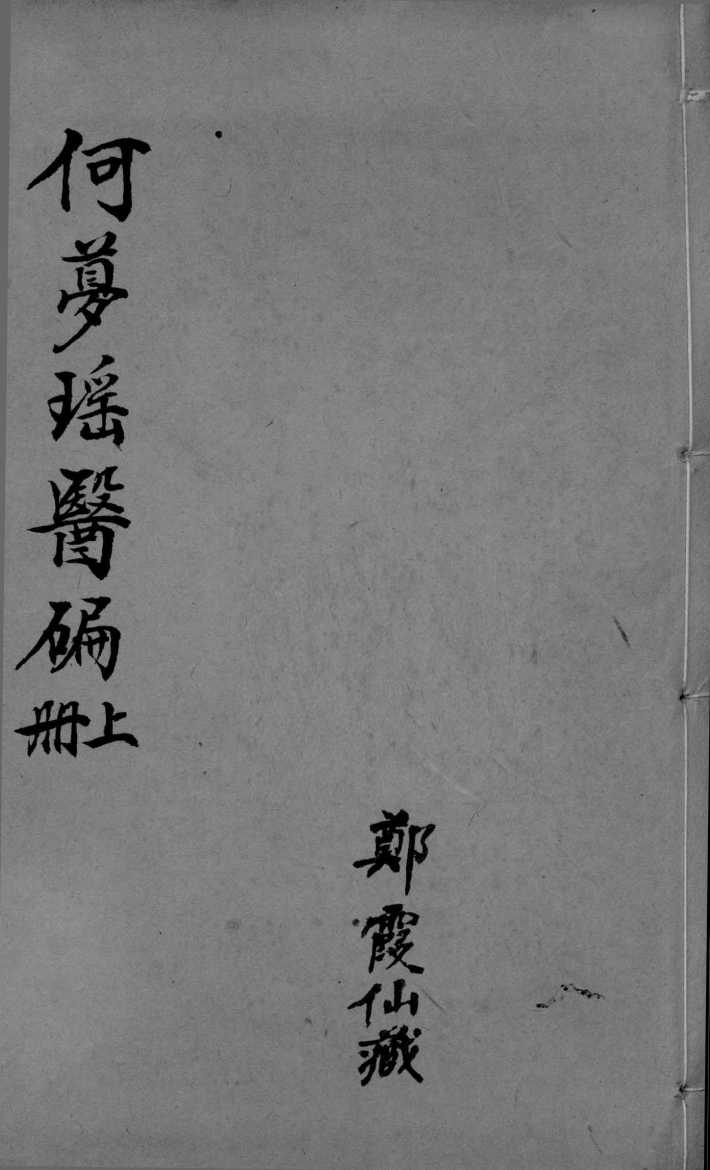 何夢瑶醫碥上册
鄭霞仙藏